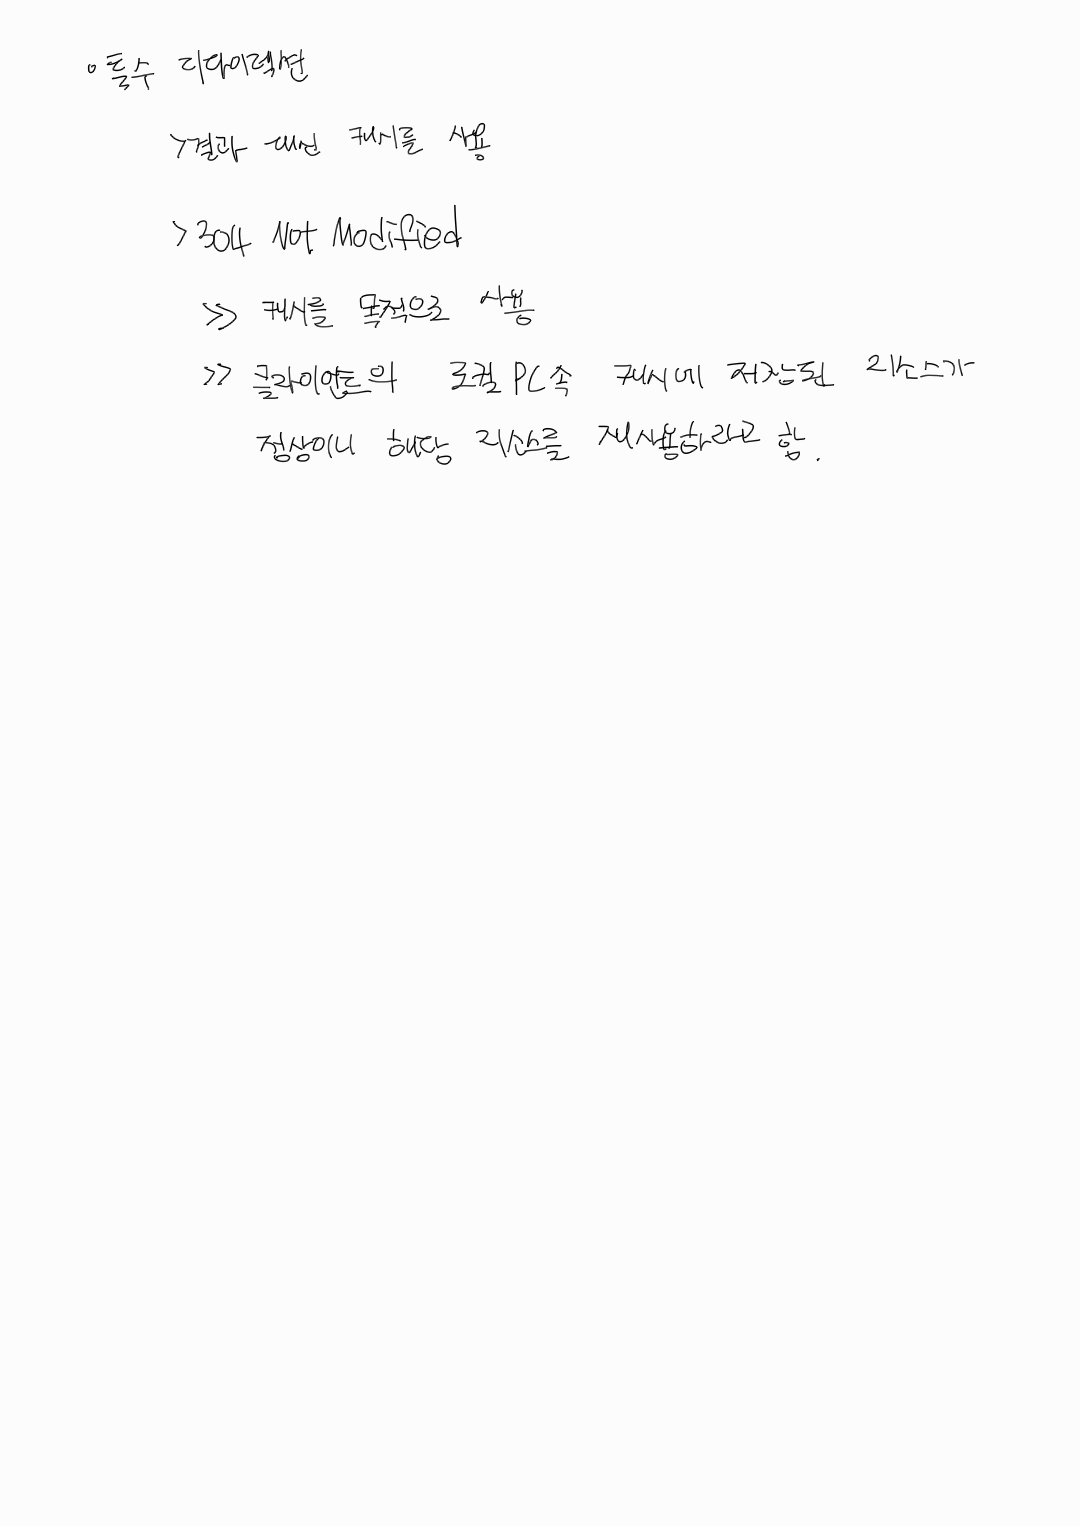 ◦ 특수 리다이렉션
>결과 대신 캐시를 사용
>304 Not Modified
>> 캐시를 목적으로 사용
>> 클라이언트의 로컬 PC속 캐시에 저장된 리소스가
정상이니 해당 리소스를 재사용하라고 함.